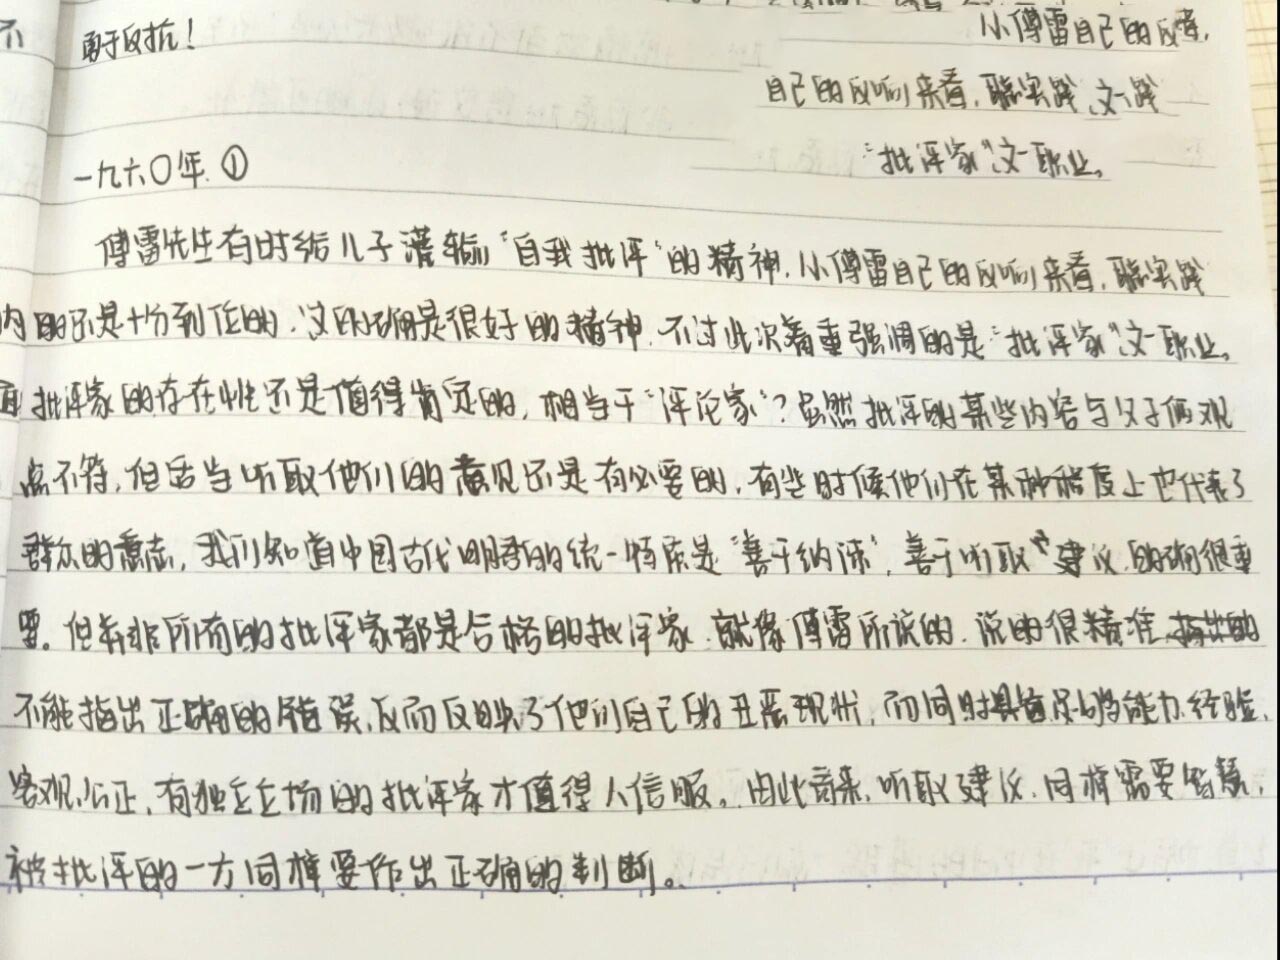 勇于反抗！
小傅雷自己的反
自己的反响来看，聪实践这一践
"批评家"这一职业。
一九六〇年.①
傅雷先生有时给儿子灌输"自我批评"的精神.小傅雷自己的反响来看，聪实践
的还是十分到位的.这的确是很好的精神.不过此次着重强调的是"批评家"这一职业。
批评家的存在性还是值得肯定的，相当于"评论家"？虽然批评的某些内容与父子俩观
点不符，但适当听取他们的意见还是有必要的.有些时候他们在某种程度上也代表了
群众的意志，我们知道中国古代明君的统一特质是"善于纳谏"，善于听取建议.的确很重
要。但并非所有的批评家都是合格的批评家.就像傅雷所说的.说的很精准
不能指出正确的错误，反而反映了他们自己的丑恶现状，而同时具备足够能力.经验.
客观公正，有独立立场的批评家才值得人信服。由此意来，听取建议.同样需要智慧，
被批评的一方同样要作出正确的判断。